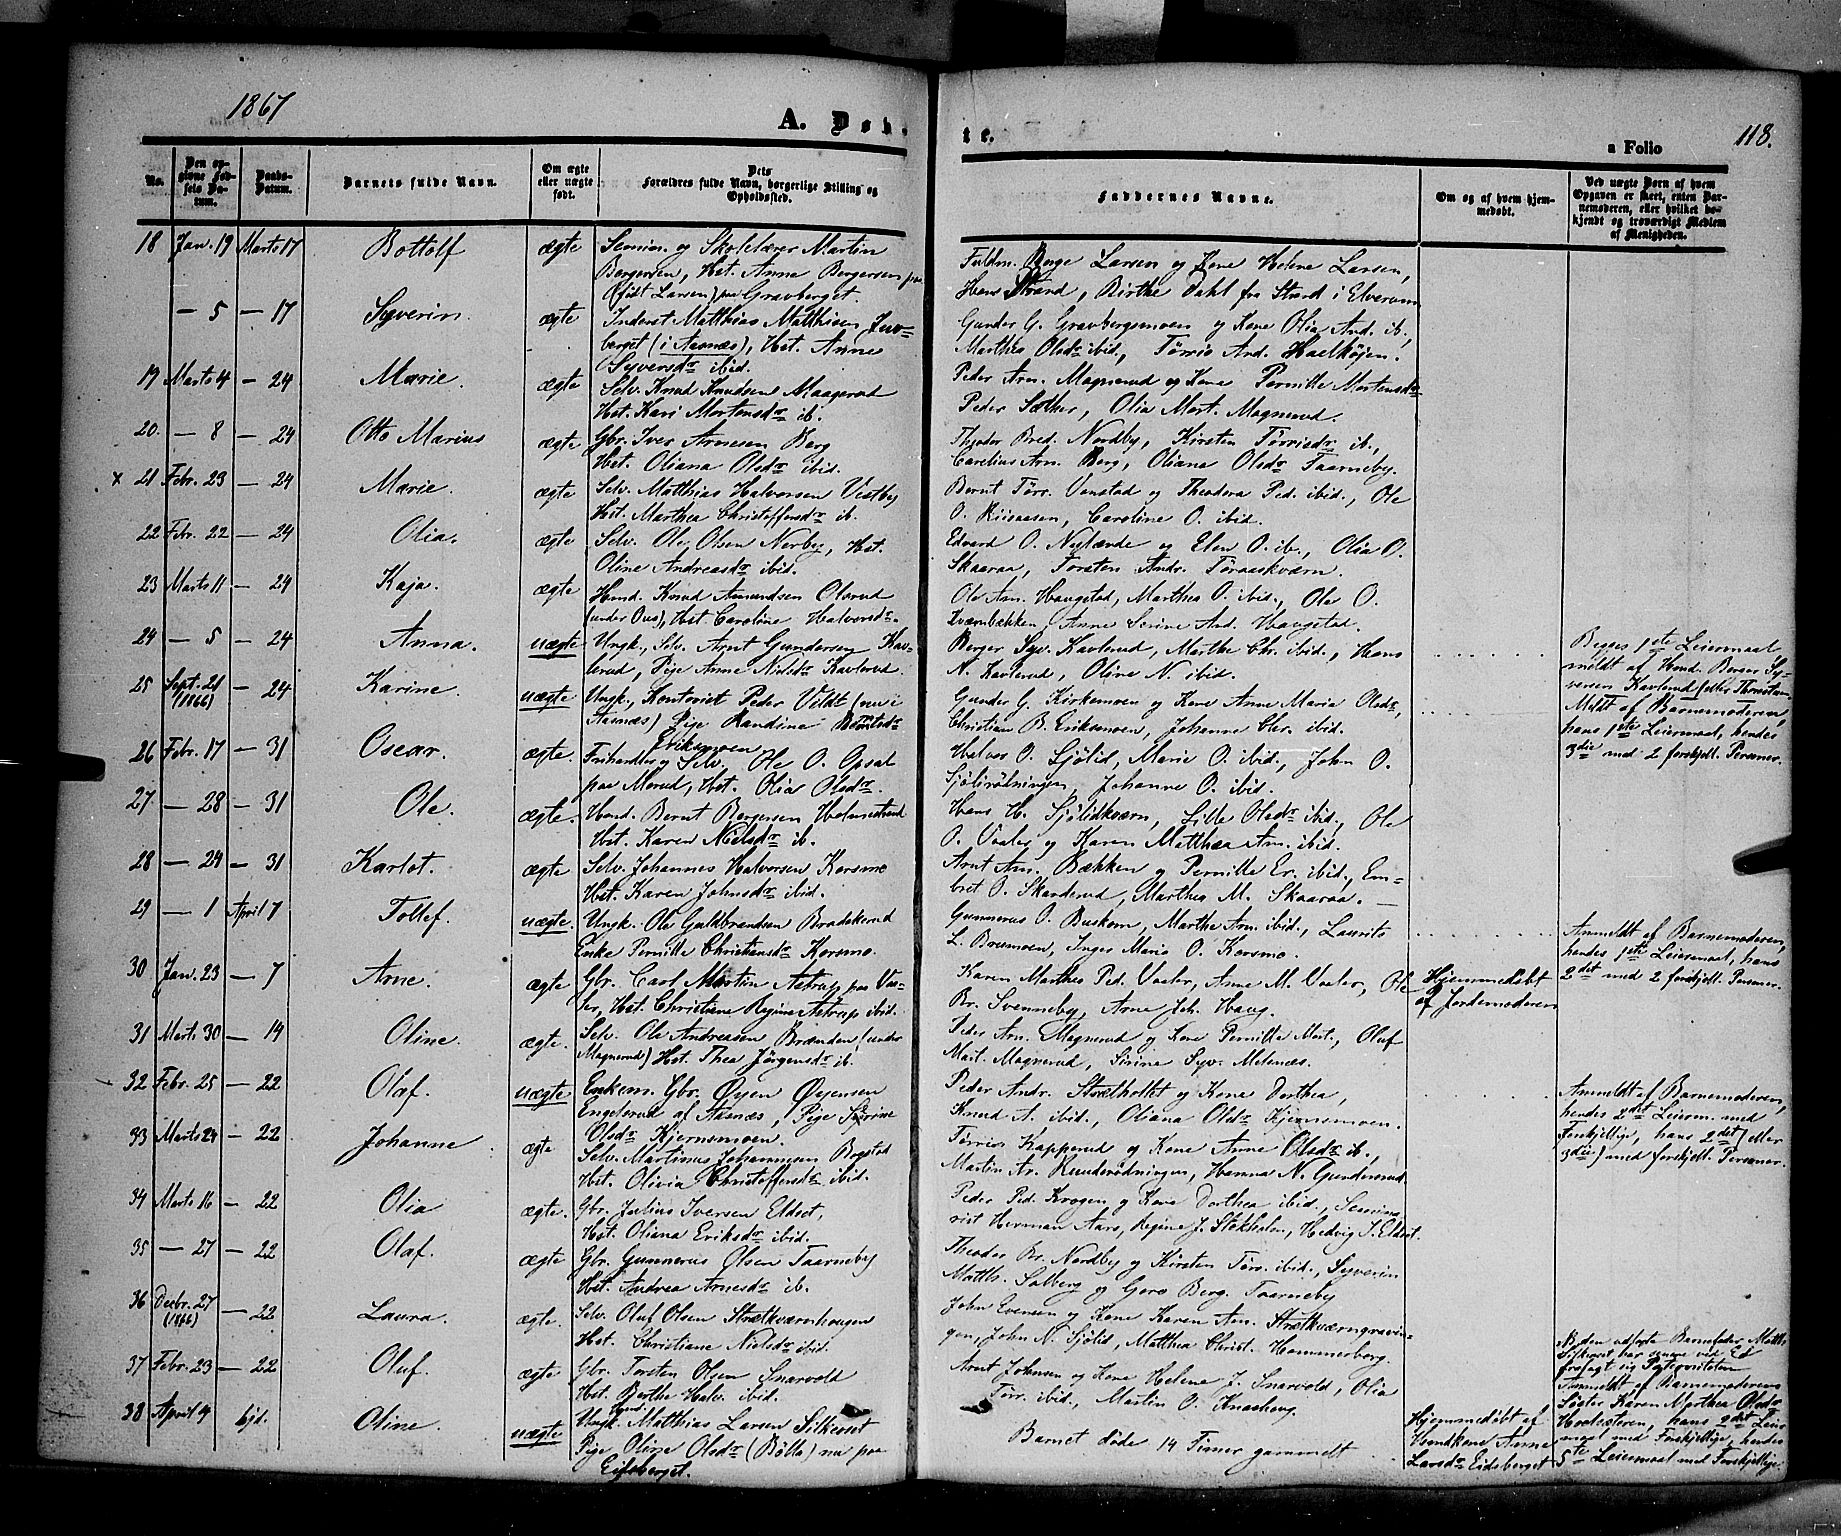 1867
A. Døb-
te.
a Folio
118.
No.
Den opgivne Fødsels Datum.
Daabs-Datum.
Barnets fulde Navn.
Om ægte eller uægte født.
Dets Forældres fulde Navn, borgerlige Stilling og Opholdssted.
Faddernes Navne.
Om og af hvem hjemmedøbt.
Ved uægte Børn af hvem Opgaven er skeet, enten Barnemoderen, eller hvilket bekjendt og troværdigt Medlem af Menigheden.
18 Jan. 19 Marts 17 Bottolf ægte Semin. og Skolelærer Martin
Bergersen, Hst. Anne Bergersen
(født Larsen) paa Gravberget.
Fuldm. Berge Larsen og Kone Helene Larsen,
Hans Strand, Birthe Dahl fra Strand i Elverum
— 5 — 17 Syverin. ægte Inderst Matthias Mathisen Juv-
berget (i Aasnæs), Hst. Anne
Syversdr ibid.
Gunder G. Gravbergsmoen og Kone Olia And. ib.,
Marthea Olsdr ibid., Tørris And. Haelhøjen.
19 Marts 4 — 24 Marie. ægte Selv. Knud Knudsen Maagerud
Hst. Kari Mortensdr ib.
Peder Arn. Magnerud og Kone Pernille Mortensdr
Peder Sæther, Olia Mort. Magnerud.
20. — 8 — 24 Otto Marius ægte Gbr. Iver Arnesen Berg
Hst. Oliana Olsdr ibid.
Theodor Bred. Nordby, Kirsten Tørrisdr ib.,
Carelius Arn. Berg, Oliana Olsdr Taarneby.
x 21 Febr. 23 — 24 Marie. ægte Selv. Matthias Halvorsen Vestby
Hst. Marthea Christoffersdr ib.
Bernt Tørr. Vonstad og Theodora Ped. ibid., Ole
O. Riisaasen, Caroline O. ibid.
22 Febr. 22 — 24 Olia. ægte Selv. Ole Olsen Nerby, Hst.
Oline Andreasdr ibid.
Edvard O. Nylænde og Elen O. ib., Olia O.
Skaaraa, Torsten Andr. Toraaskværn.
23 Marts 11 — 24 Kaja. ægte Husm. Knud Amundsen Olsrud
(under Ous), Hst. Caroline Halvorsdr.
Ole Am. Haugstad, Marthea O. ibid., Ole O.
Kværnbækken, Anne Serine And. Haugstad.
24 — 5 — 24 Anna. uægte Ungk., Selv. Arnt Gundersen Kav-
lerud, Pige Anne Nielsdr Kavlerud.
Berger Syv. Kavlerud, Marthe Chr. ibid., Hans
N. Kavlerud, Oline N. ibid.
Begges 1ste Leiermaal
meldt af Husm. Berger Sy-
versen Kavlerud
25 Sept. 21 (1866) — 24 Karine. uægte Ungk., Kontorist Peder Vildt (nu i
Aasnæs) Pige Randine Berntsdr
Eriksmoen
Gunder G. Kirkemoen og Kone Anne Maria Olsdr,
Christian B. Eriksmoen, Johanne Chr. ibid.
Meldt af Barnemoderen,
hans 1ste Leiermaal, hendes
3die med 2 forskjell. Personer.
26 Febr. 17 — 31 Oscar. ægte. Frihandler og Selv. Ole O. Opsal
paa Morud, Hst. Olia Olsdr.
Halvor O. Sjølid, Marie O. ibid., John O.
Sjølirødningen, Johanne O. ibid.
27 — 28 — 31 Ole. ægte. Husm. Bernt Bergersen Holmestrand
Hst. Karen Nielsdr ib.
Hans H. Sjølidkværn, Lille Olsdr ibid., Ole
O. Vaaler og Karen Matthea Arn. ibid.
28 — 24 — 31 Karlot. ægte Selv. Johannes Halvorsen Korsmo
Hst. Karen Johnsdr ibid.
Arnt Am. Bækken og Pernille Er. ibid., Em-
bret O. Skarderud, Marthea M. Skaaraa.
29 — 1 April 7 Tollef. uægte. Ungk. Ole Guldbrandsen Bradskerud
Enke Pernille Christiansdr Korsmo.
Gunnerus O. Buskom, Marthe Arn. ibid., Laurits
L. Brumoen, Inger Maria O. Korsmo.
Anmeldt af Barnemoderen,
hendes 1ste Leiermaal, hans
2det med 2 forskjell. Personer.
30 Jan. 23 — 7 Arne. ægte Gbr. Carl Martin Astrup paa Vaa-
ler, Hst. Christiane Regine Astrup ibid.
Karen Marthea Ped. Vaaler, Anne M. Vaaler, Ole
Br. Svenneby, Arne Joh. Haug.
Hjemmedøbt
af Jordemoderen
31 Marts 30 — 14 Oline. ægte. Selv. Ole Andreasen Brænden (under
Magnerud) Hst. Thea Jørgensdr ib.
Peder Arn. Magnerud og Kone Pernille Mort., Oluf
Mart. Magnerud, Sirine Syv. Melenæs.
32 Febr. 25 — 22 Olaf. uægte Enkem. Gbr. Øyen Øyensen
Engelsrud af Aasnæs, Pige Sørine
Olsdr Kjernsmoen.
Peder Andr. Strætholtet og Kone Dorthea,
Knud A. ibid., Oliana Olsdr Kjernsmoen.
Anmeldt af Barnemoderen,
hendes 2det Leierm. med
Forskjellige, hans 2det (eller
3die) med forskjell. Personer.
33 Marts 24 — 22 Johanne ægte Selv. Martinus Johannesen Bogstad
Hst. Olivia Christoffersdr ibid.
Tørris Kapperud og Kone Anne Olsdr ib.,
Martin Ar. Runderødningen, Hanna N. Gundersrud.
34 Marts 16 — 22 Olia ægte. Gbr. Julius Iversen Eldset,
Hst. Oliana Eriksdr ibid.
Peder Ped. Krogen og Kone Dorthea ibid., Semina-
rist Herman Aars, Regine J. Stokholen, Hedvig I. Eldset.
35 — 27 — 22 Olaf. ægte Gbr. Gunnerus Olsen Taarneby
Hst. Andrea Arnesdr ib.
Theodor Br. Nordby og Kirsten Tørr. ibid., Syverin
Matth. Solberg og Goro Berg. Taarneby
36 Decbr. 27 (1866) — 22 Laura. ægte. Selv. Oluf Olsen Strætkværnhougen
Hst. Christiane Nielsdr ibid.
John Evensen og Kone Karen Am. Strætkværngravin-
gen, John N. Sjølid, Matthea Christ. Hammerborg.
37 Febr. 23 — 22 Oluf. ægte Gbr. Torsten Olsen Snarvold
Hst. Berthe Halv. ibid.
Arnt Johnsen og Kone Helene J. Snarvold, Olia
Tørr. ibid., Martin O. Knashaug.
38 April 4 hjd. Oline. uægte Ungk. Matthias Larsen Silkeset
Pige Oline Olsdr (Bølla) nu paa
Eidsberget.
Barnet døde 14 Timer gammelt
Hjemmedøbt af
Husmkone Anne
Larsdr Eidsberget
NB. den udlagte Barnefader Matth.
Silkeset har senere ved Ed
fralagt sig Paterniteten
Anmeldt af Barnemoderens
Søster Karen Marthea Olsdr
Hvalsæteren, hans 2det Leier-
maal med Forskjellige, hendes
5te Leiermaal med Forskjellige.